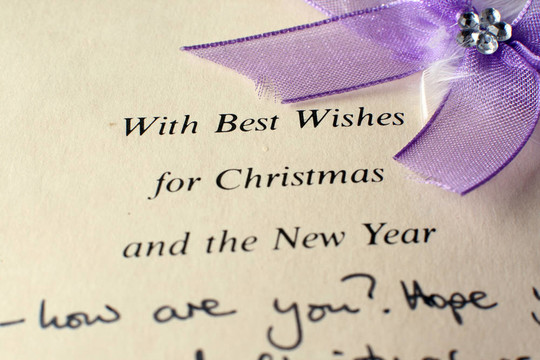 With Best Wishes
for Christmas
and the New Year
– how are you?. Hope